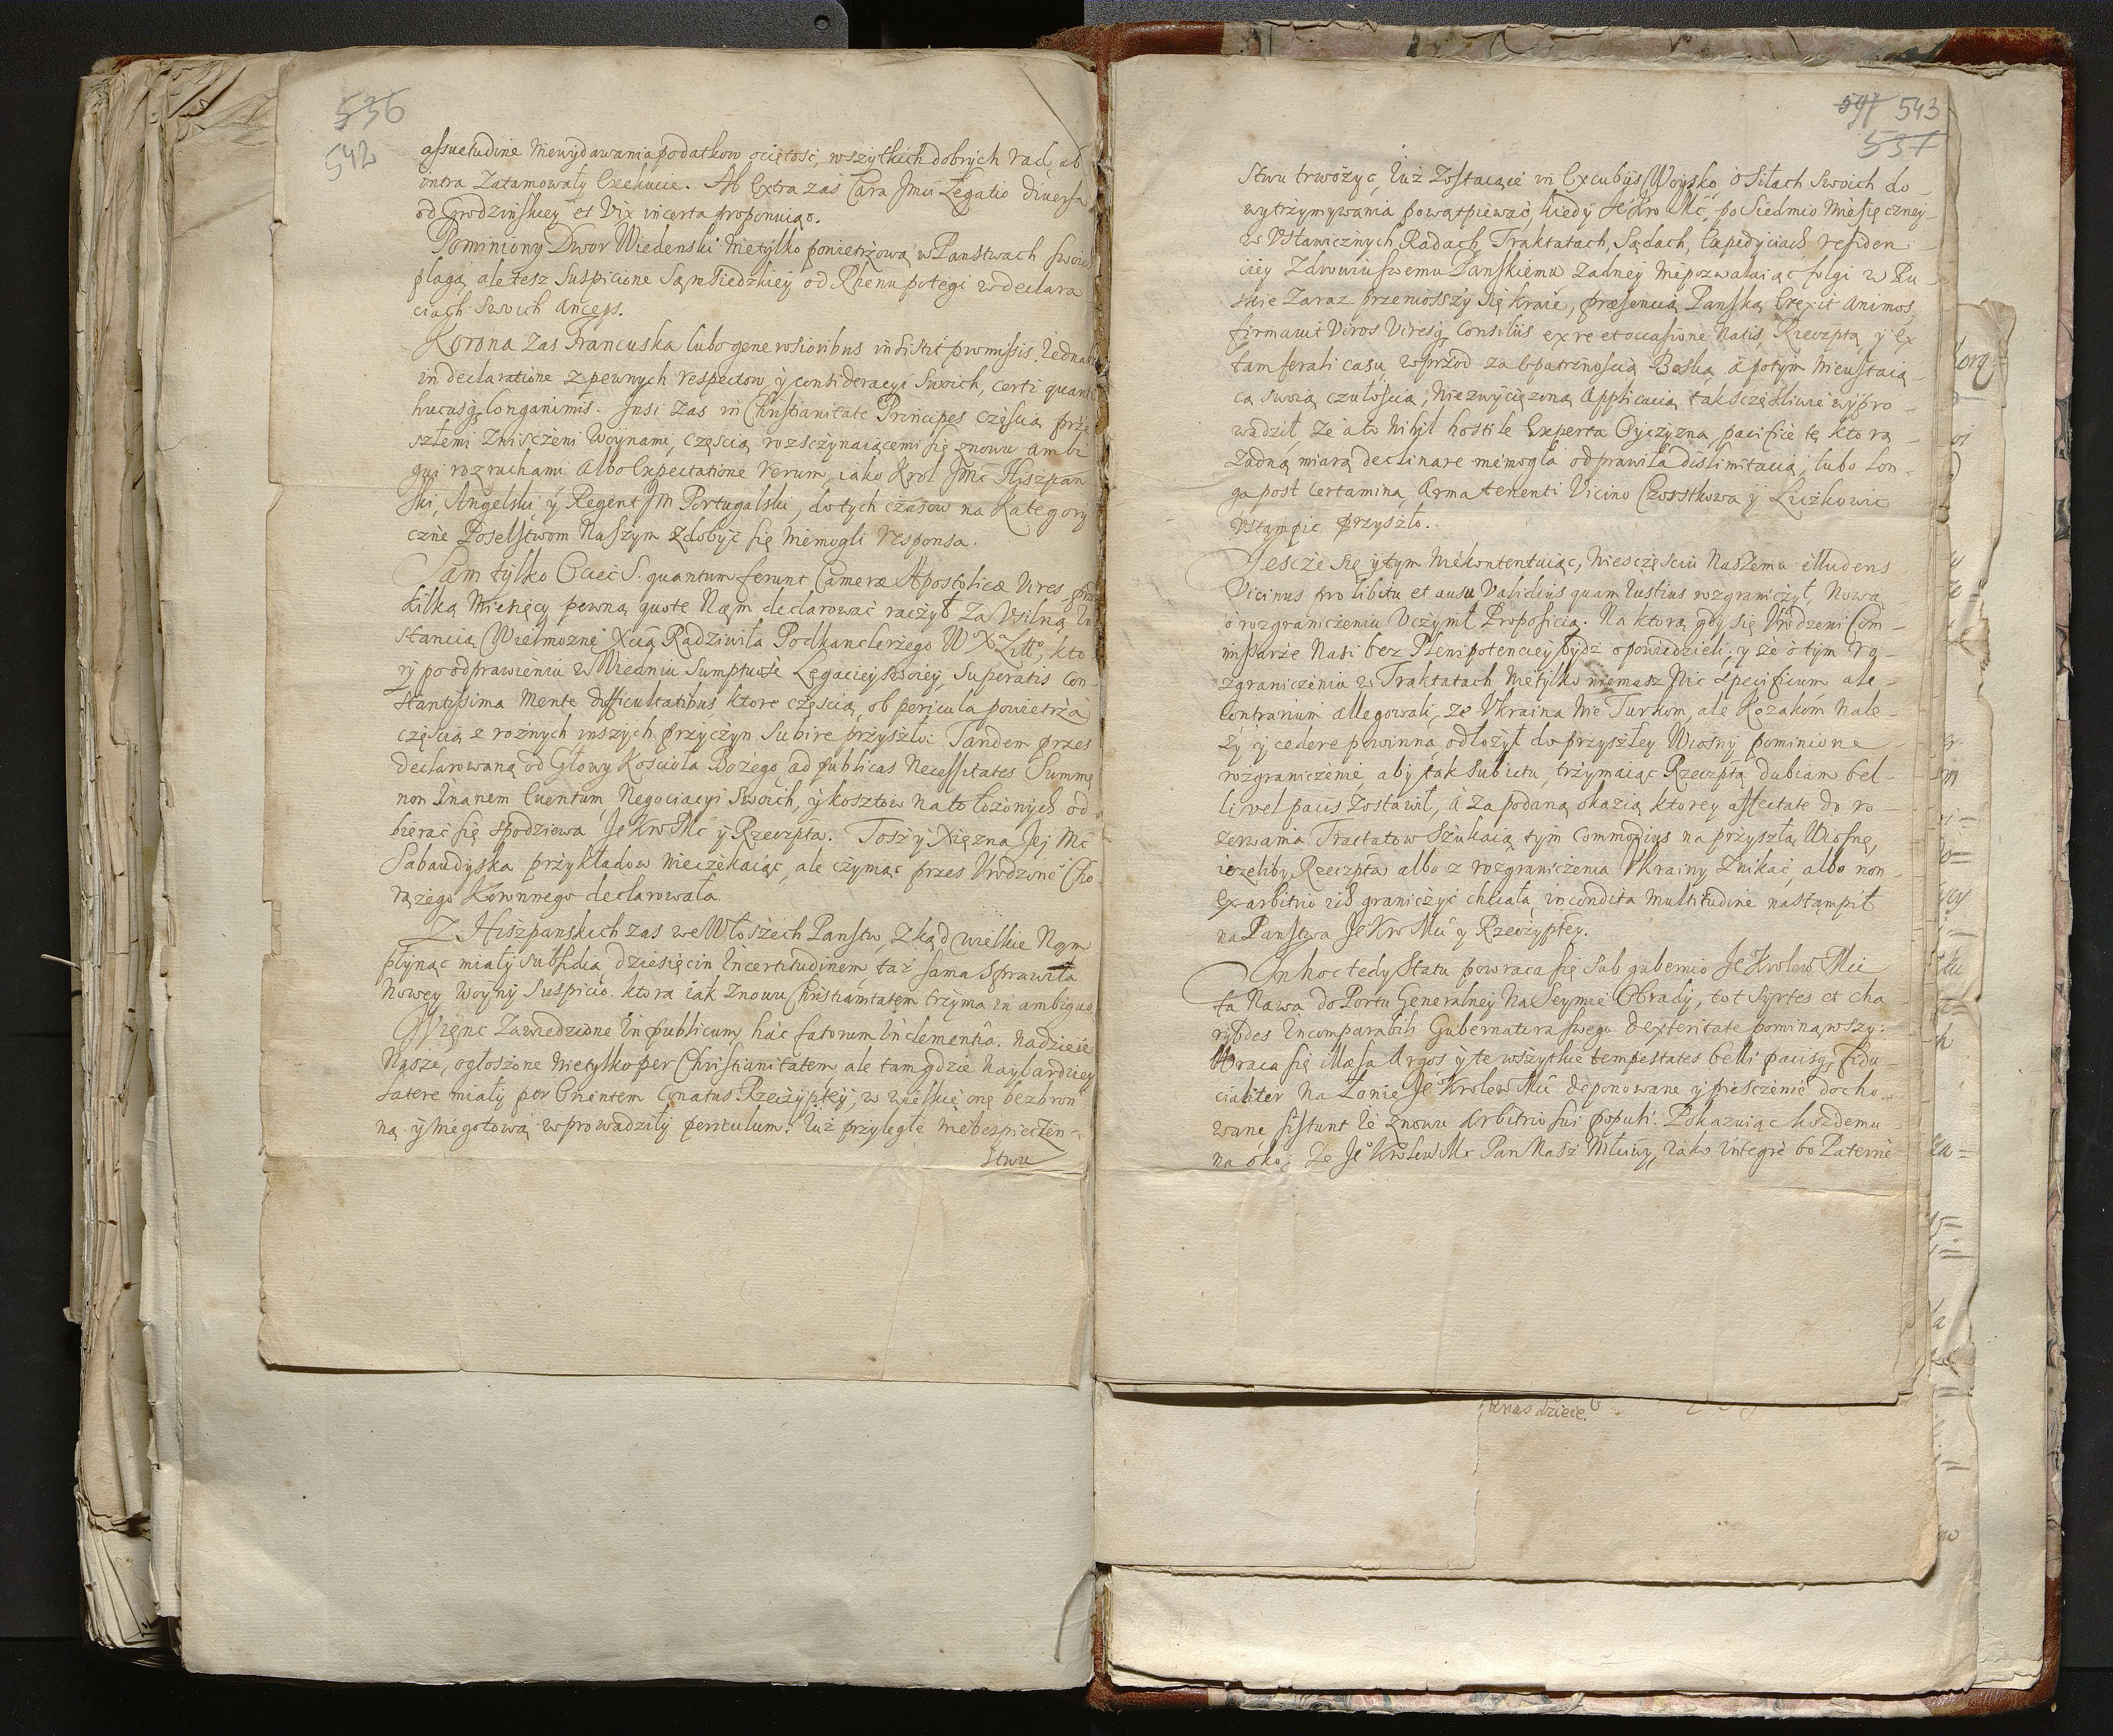 536
542
assuetudine niewydawania podatkow ociętość, wszytkich dobrych rad, ab
intra zatamowały Exekucie. Ab Extra zaś Cara Jmći Legatio diversa
od Grodzińskiey et vix incerta proponuiąc.
Pominiony Dwor Wiedenski nietylko powietrzową w Panstwach swoich
plagą, ale tesz suspicione sąmsiedzkiey od Rhenu potęgi w declara
ciach swoich anceps.
Korona zas Francuska lubo generosioribus insistit promissis. Iednak
in declaratione z pewnych respectow, y consideracyi swoich, certi quanti
hucusq longanimis. Insi zas in Christianitate Principes częscią prze
szłemi zniszczeni woynami, częscią rozsczynaiącemi się znowu ambi
gui rozruchami albo Expectatione rerum, iako Krol Jmć Hiszpan
ski, Angelski y Regent Jm Portugalski, do tych czasow na Kategory
czne Poselstwom Naszym zdobyć się niemogli responsa.
Sam tylko Ociec S. quantum ferunt Camerae Apostolicae vires
kilką Miesięcy pewną quotę Nąm declarować raczył za usilną In
stancią Wielmoznę Xcia Radziwiła Podkanclerzego W X Litto, kto
ry po odprawieniu w Wiedniu sumptuose Legaciey swoiey, superatis con
stantissima mente difficultatibus ktore częscią, ob pericula powietrza
częscią z roznych inszych przyczyn subire przyszło. Tandem przes
declarowaną od Głowy Koscioła Bożego, ad publicas necessitates Summę
non inanem Euentum Negociacyi swoich, y kosztow na to łożonych od
bierać się spodziewa Je Kro Mć y Rzeczpta. Tosz y Xięzna Jej Mć
Sabaudyska przykładow nieczekaiąc, ale czyniąc przes Urodzone Cho
rązego Koronnego declarowała.
Z Hiszpanskich zas we Włoszech Panstw, zkąd wielkie Nąm
płynąc miały subsidia, dziesięcin Incertitudinem taż sama sprawiła
nowey woyny suspicio. ktora iak znowu Christianitatem trzyma in ambiguo
Więnc zawiedzione in publicum hac fatorum Inclementia. nadzieie
Nasze, ogłoszone nietylko per Christianitatem, ale tam gdzie naybardziey
latere miały per Orientem Conatus Rzeczyptey, w wielkie onę bezbron
ną y niegotową wprowadziły periculum. Iuż przyległe niebespieczen-
stwu
547 543
537
stwu trwożyc, Iuż zostaiące in Excubijs Woysko o siłach swoich do
wytrzymywania powątpiewać, kiedy Je Kro Mć, po siedmio Miesięczney
w Ustawicznych Radach, Traktatach, Sądach, Expedyciach residen
ciey zdrowiu swemu Panskiemu zadney niepozwalaiąc folgi w Ru
skie zaraz przeniosszy się kraie, praesencią Panską Erexit animos,
firmavit viros viresq Consiliis ex re et occasione natis, Rzeczptą y ex
tam ferali casu, wprzod za Opatrznoscią Boską, a potym nieustaią
cą swoią czułoscią, niezwyciężoną applicacią tak sczęśliwie wypro
wadził, że ato nihil hostile Experta Oyczyzna, pacificè tę ktorą
żadną miarą declinare niemogła odprawiła dislimitacią, lubo lon
ga post certamina, Arma tenenti Vicino Czostkowa y Liczkowic
Ustąpic przyszło.
Jescze się y tym niekontentuiąc, niesczęściu Naszemu illudens
Vicinus pro libitu et ausu validius quam iustius rozgraniczył, Nową
o rozgraniczeniu uczynił Propositią. Na ktorą gdy się Urodzeni Com
missarze Nasi bez Plenipotenciey bydz opowiedzieli, y że o tym ro
zgraniczeniu w Traktatach nietylko niemasz nic specificum ale
contrarium allegowali, ze Ukraina nie Turkom, ale Kozakom nale
ży y cedere powinna, odłożył do przyszłey Wiosny pominione
rozgraniczenie, aby tak subietu, trzymaiąc Rzeczptą dubiam bel
li vel pacis zostawił, a za podaną okazią ktorey affectate do ro
zerwania Tractatow szukaią tym commodius na przyszłą Wiosnę,
iezeliby Rzeczpta albo z rozgraniczenia Ukrainy znikać, albo non
ex arbitrio ich graniczyc chciała, incondita multitudine nastąmpił
na Panstwa Je Kro Mći y Rzeczyptey.
In hoc tedy statu powraca się sub gubernio Je Krolew Mci
ta Nawa do Portu Generalney na Seymie Obrady, tot syrtes et cha
rybdes Incomparabili Gubernatora swego dexteritate pominąwszy.
Wraca się Massa Argos y te wszytkie tempestates belli pacisq fidu
cialiter na Łonie Je Krolew Mći deponowane y piesczenie docho
wane sistunt ie znowu Arbitrio sui populi. Pokazuiąc kożdemu
na oko, że Je Krolew Mć Pan Nasz Miłciwy, iako integrè bo Paterne
unas dzieie.